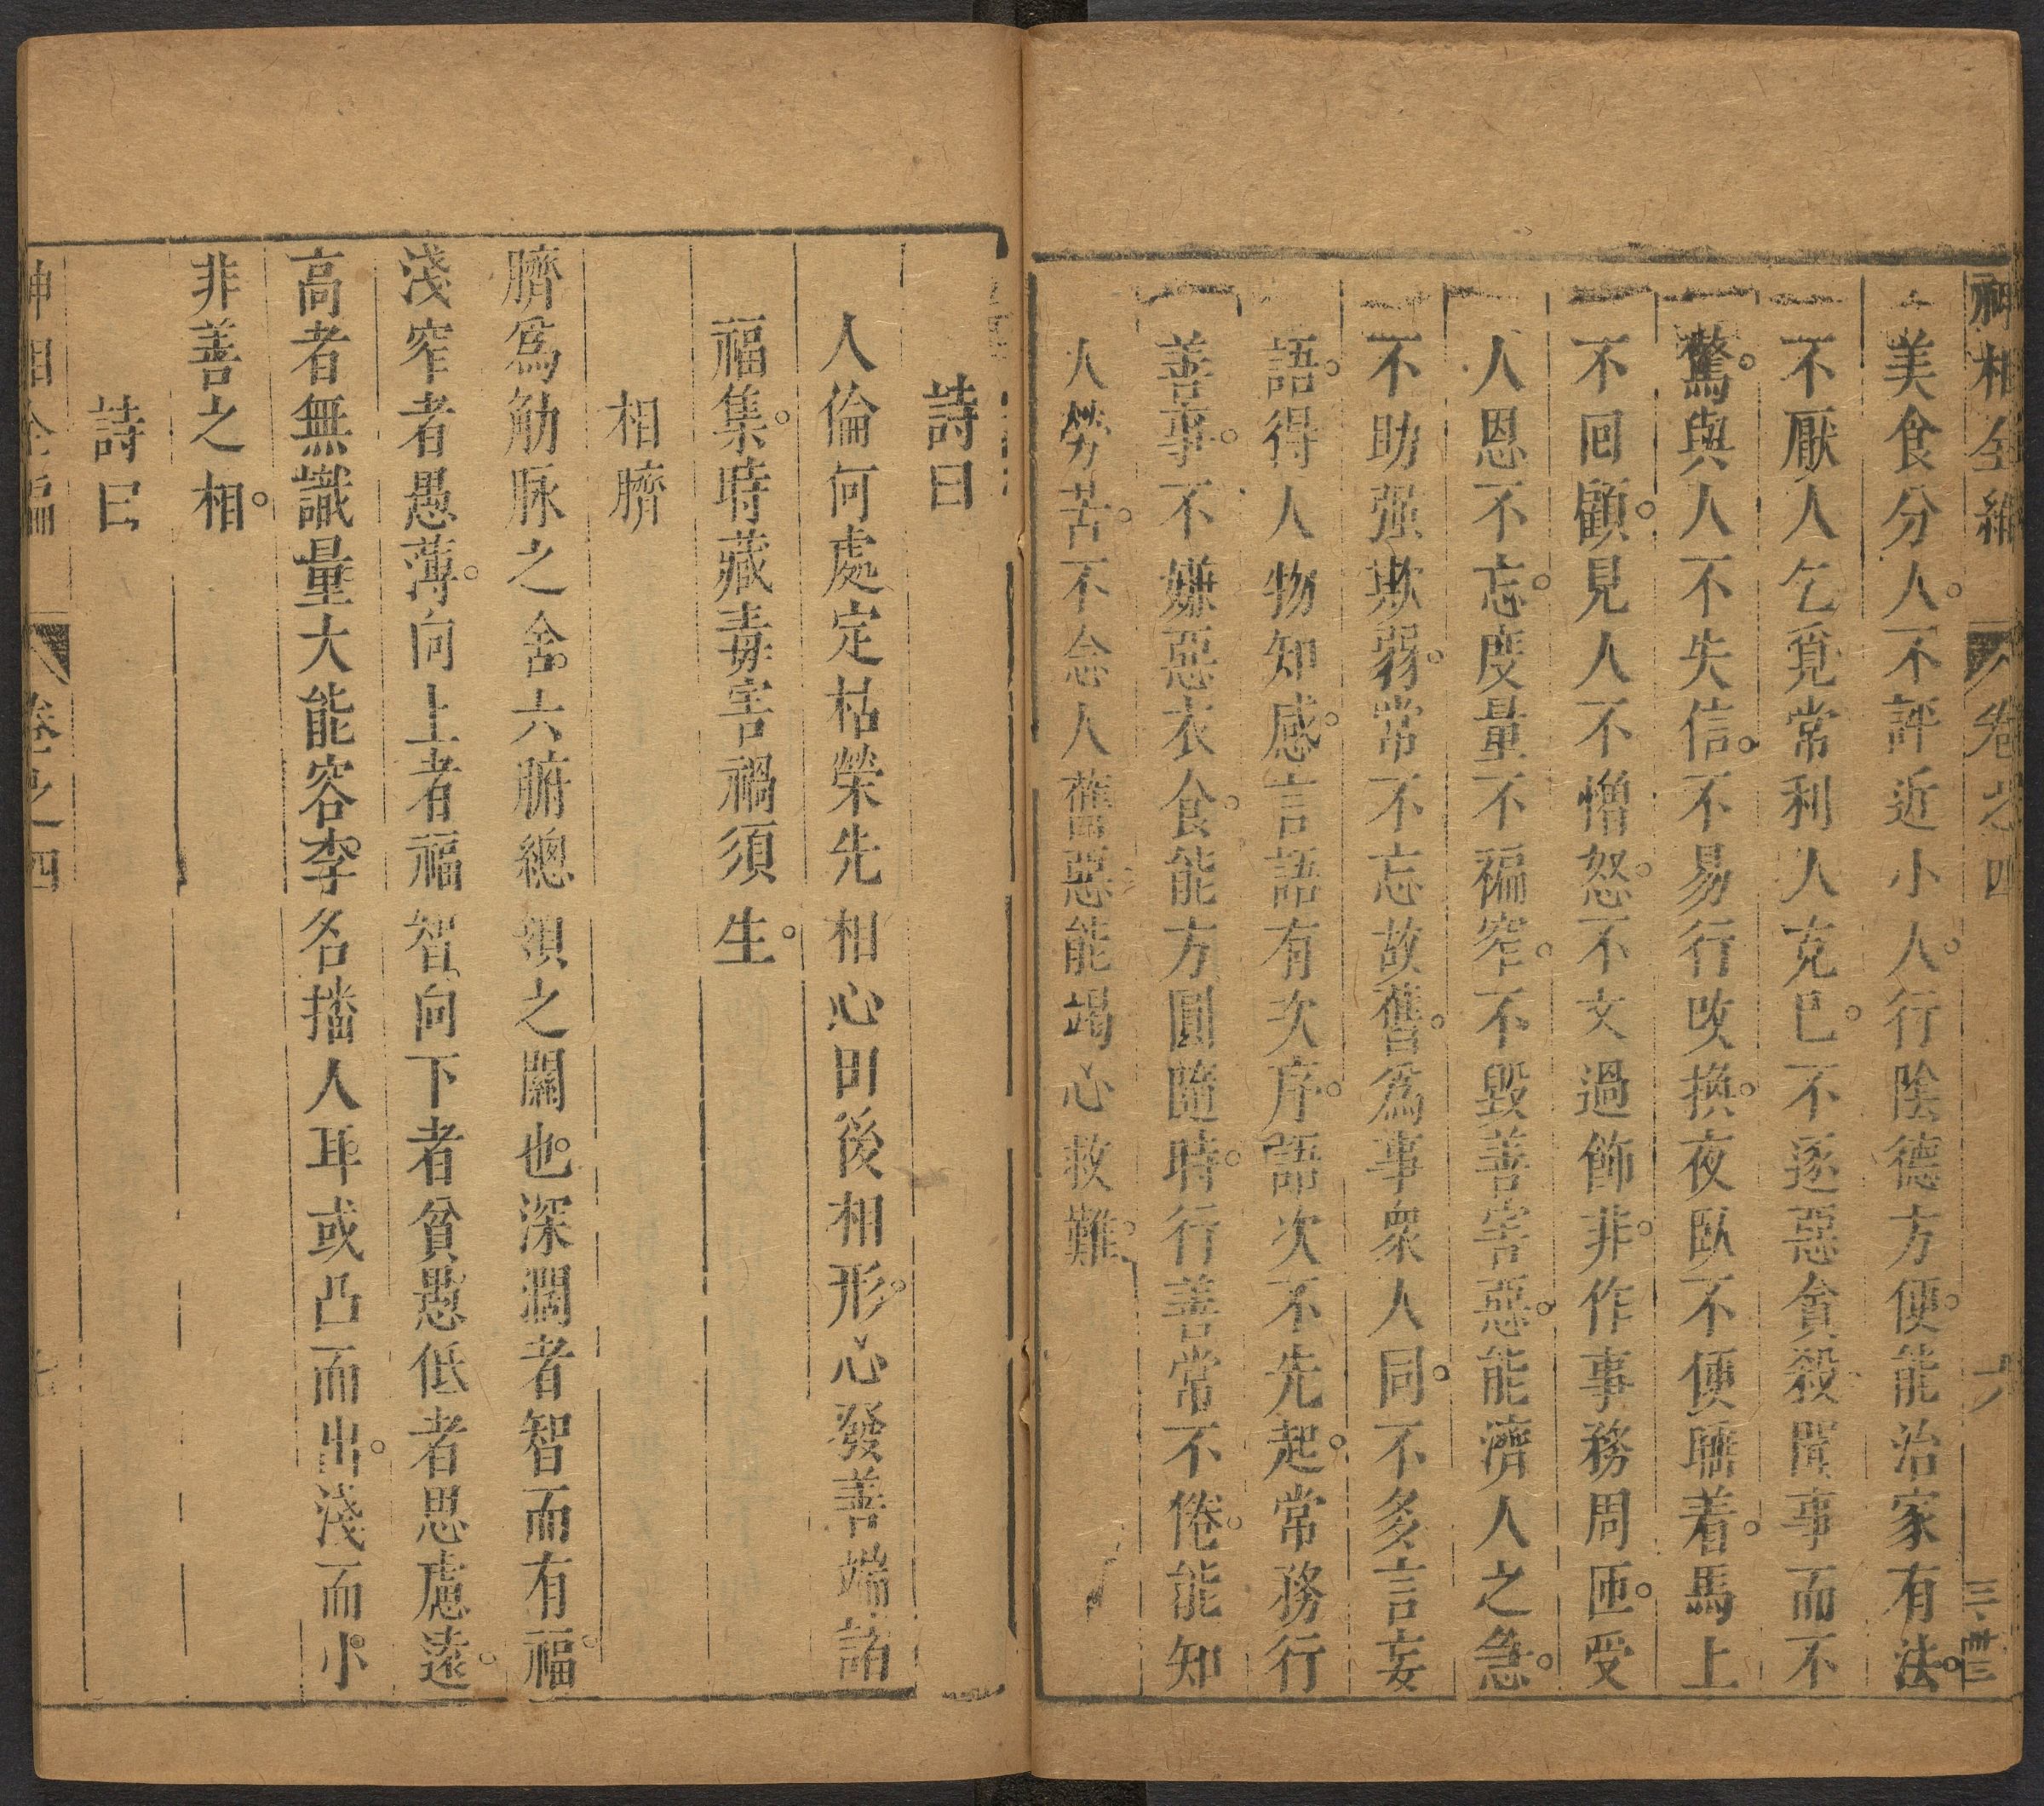 神相全編 卷之四 六 三
一美食分人。不評近小人。行陰德方便。能治家有法。
一不厭人乞覓常利人克已。不逐惡貪殺聞事而不
驚。與人不失信。不易行改換。夜臥不便睡着。馬上
一不回顧。見人不憎怒。不文過飾非。作事務周匝。受
人恩不忘。度量不褊窄。不毀善害惡。能濟人之急。
一不助强欺弱。常不忘故舊。為事衆人同。不多言妄
語。得人物知感。言語有次序。語次不先起。常務行
善事。不嫌惡衣食。能方圓隨時。行善常不倦。能知
人勞苦。不念人舊惡。能竭心救難。
詩曰
人倫何處定枯榮先相心田後相形。心發善端諸
福集。時藏毒害禍須生。
相臍
臍爲觔脉之舍。六腑總領之關也。深濶者智而有福。
淺窄者愚薄。向上者福智。向下者貧愚低者思慮遠。
高者無識量大能容李。名播人耳。或凸而出。淺而小。
非善之相。
詩曰
神相全編 卷之四 七